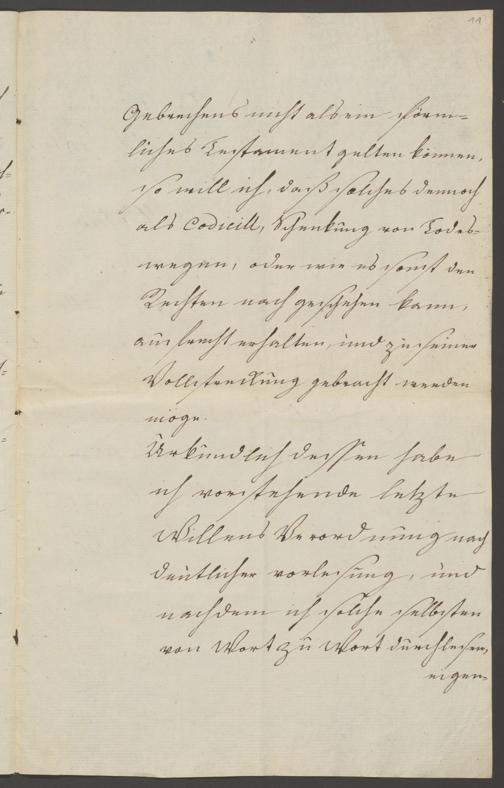 11
Gebrechens nicht als ein förm-
liches Testament gelten können,
so will ich, daß solches dennoch
als Codicill, Schenkung von Todes-
wegen, oder wie es sonst den
Rechten nach geschehen kann,
aufrecht erhalten, und zu seiner
Vollstreckung gebracht werden
möge.
Urkundlich dessen habe
ich vorstehende letzte
Willens Verordnung nach
deutlicher vorlesung, und
nachdem ich solche selbsten
von Wort zu Wort durchlesen,
eigen-